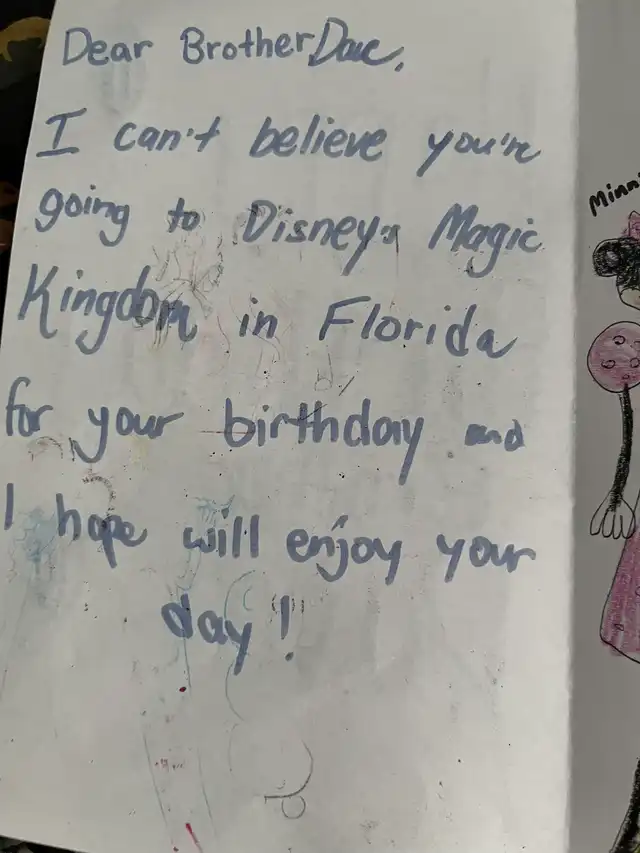 Dear Brother Dave,
I can't believe you're
going to Disney's Magic
Kingdom in Florida
for your birthday and
I hope will enjoy your
day!
Minni